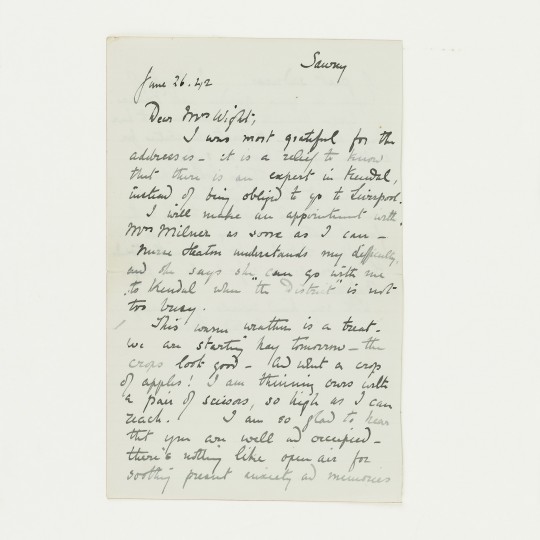 Sawrey
June 26. 42
Dear Mrs Wight,
I was most grateful for the
addresses - it is a relief to know
that there is an expert in Kendal,
instead of being obliged to go to Liverpool.
I will make an appointment with
Mrs Milner as soon as I can -
Nurse Heaton understands my difficulty,
and she says she can go with me
to Kendal when "the District" is not
too busy.
This warm weather is a treat -
we are starting hay tomorrow - the
crops look good - And what a crop
of apples! I am thinning ours with
a pair of scissors, so high as I can
reach. I am so glad to hear
that you are well and occupied -
there's nothing like open air for
soothing present anxiety and memories